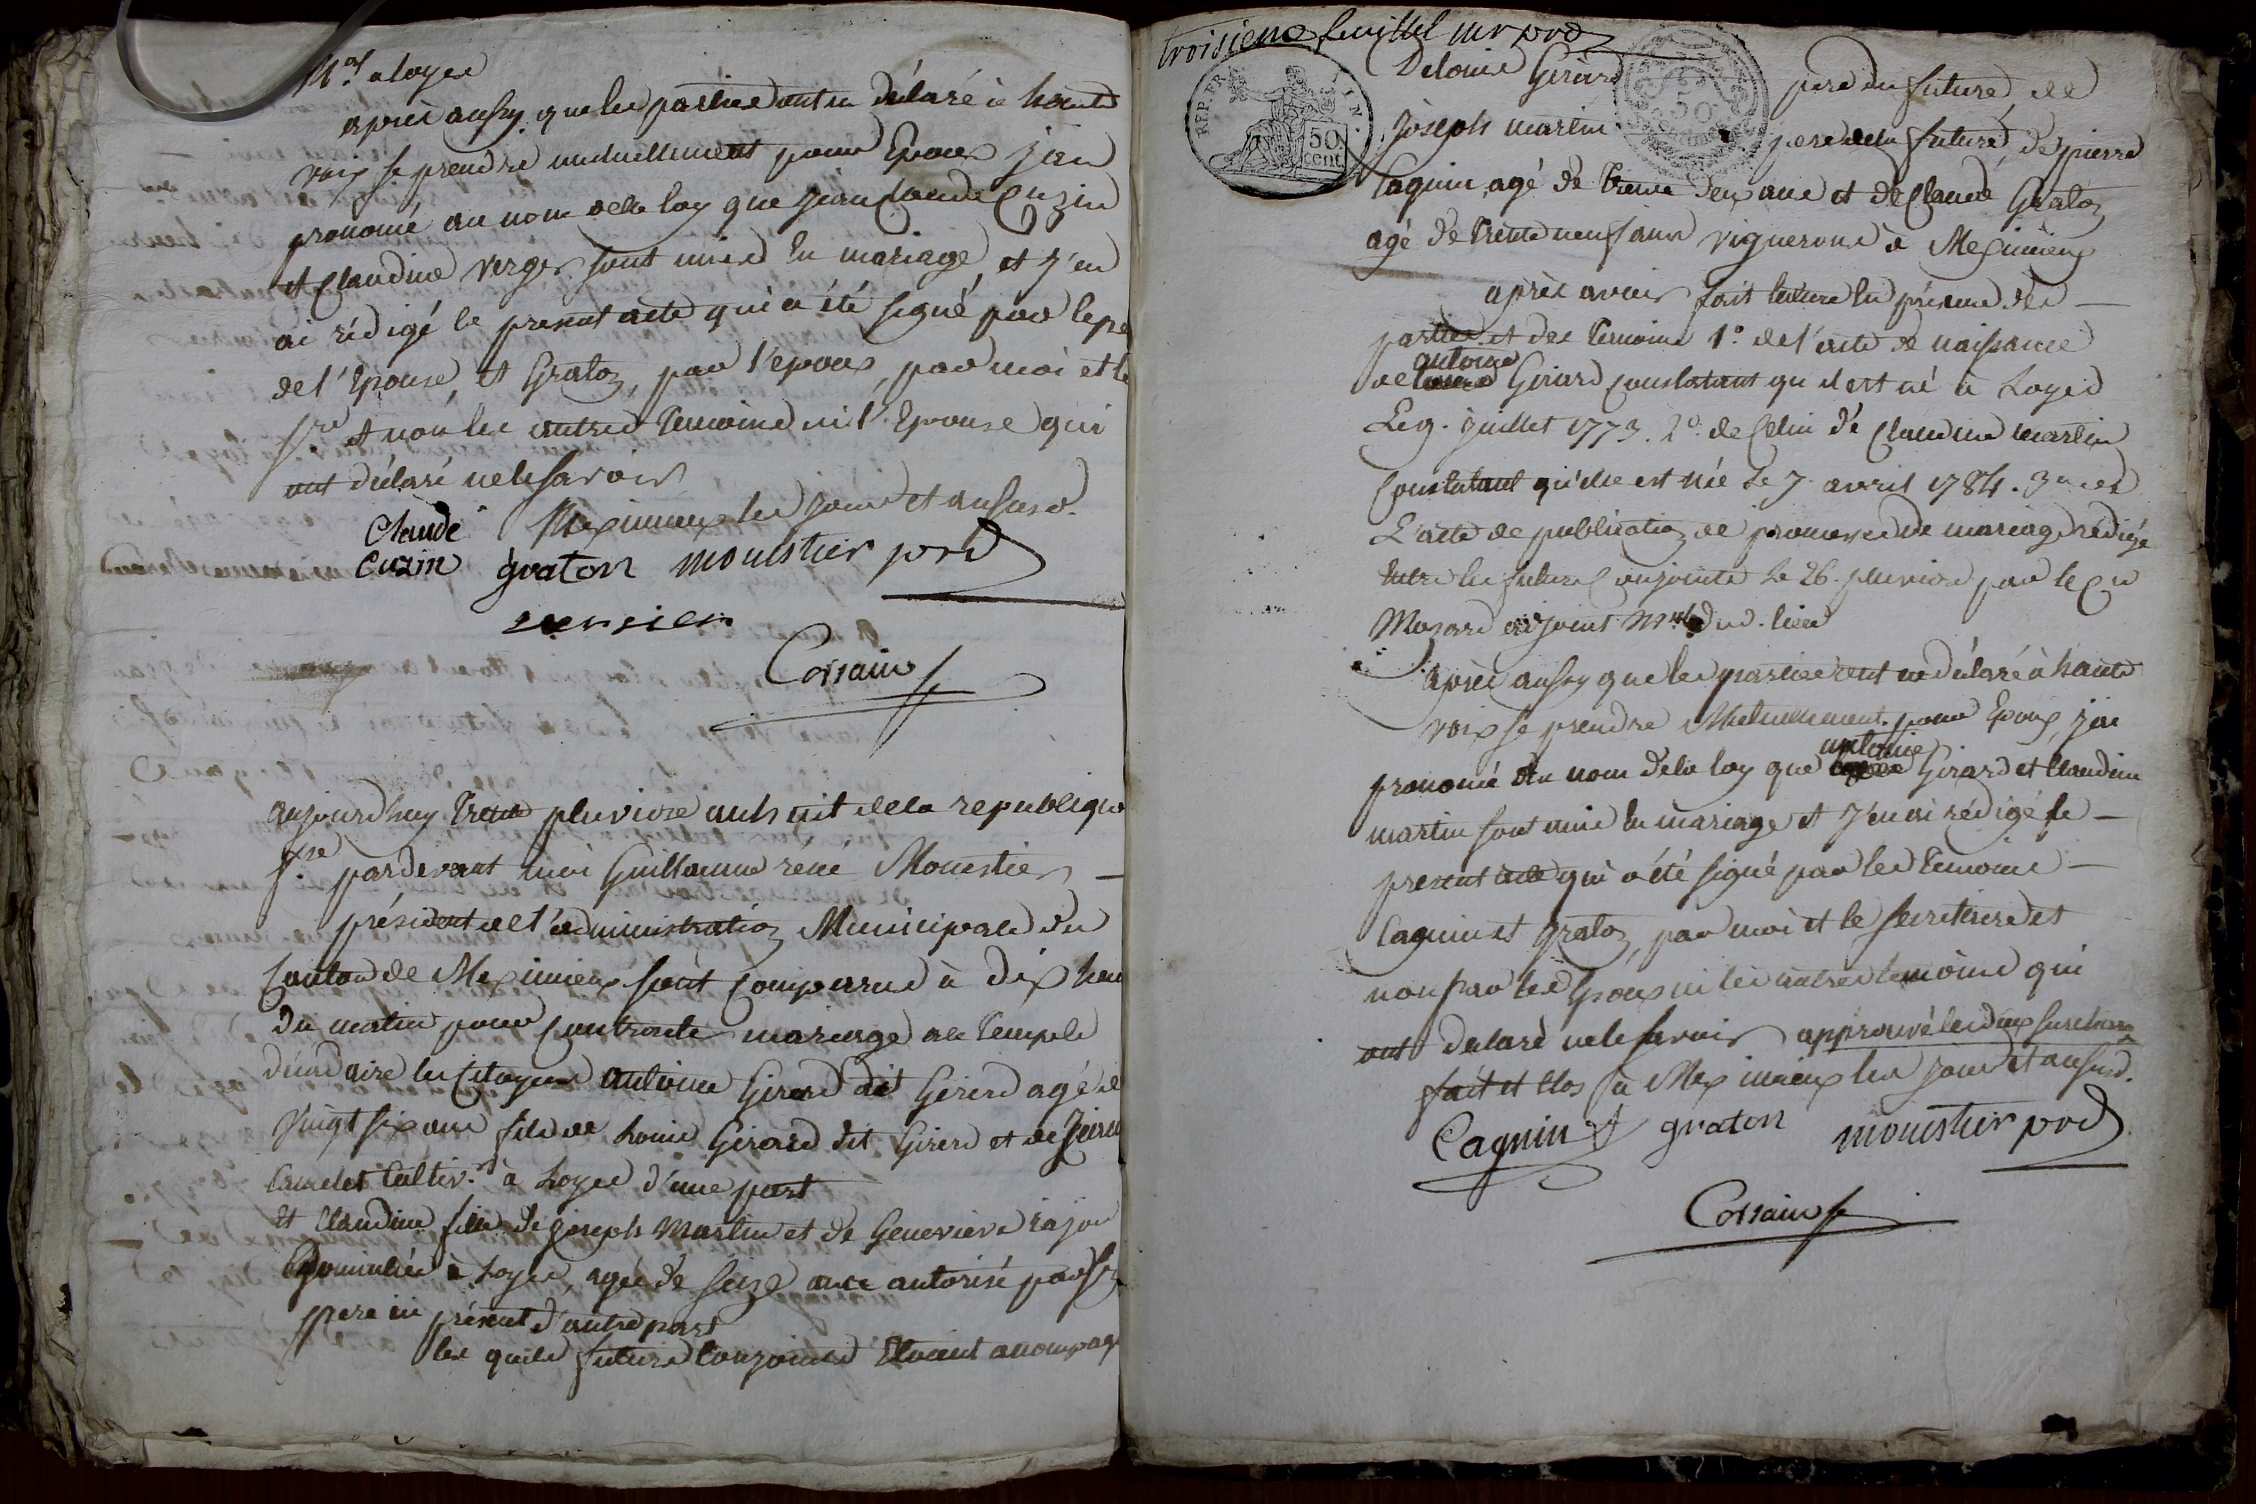 Mal a loyes
après aussy que les parties ont eu déclaré à haute
voix se prendre mutuellement pour Epoux j'ai
prononcé au nom de la loy que jean Claude Cuzin
et Claudine verger sont unis en mariage, et j'en
ai rédigé le present acte qui a été signé par le pe
de l'Epouse, et Graton, par l'epoux, par moi et le
sre et non les autres temoins ni l'Epouse qui
ont déclaré ne le savoir
Meximieux les jour et an susd.
Claude
Cuzin graton moustier prd
versier
Corrain
aujourdhuy trente pluviose an huit de la republique
fse pardevant moi Guillaume réné Moustier
président de l'administration Municipale du
Canton de Meximieux sont comparus à dix heu
du matin pour contracter mariage au temple
décadaire les Citoyens antoine Girard dit Girerd agé de
vingt six ans fils de Louis Girard dit Girerd et de
Cultivr. à Loyes d'une part
Et Claudine fille de joseph Martin et de Genevieve rajon
domiciliée à Loyes, agée de seize ans autorisé par
pere ici présent d'autre part
les quels futurs conjoints Etoient accompag
troisieme feuillet prd
REP. FRA.
50
cent.
50
De Louis Girard pere du futur, de
joseph martin pere de la future, de pierre
Cagnin agé de trente deux ans et de Claude Graton
agé de trente neuf ans vignerons à Meximieux
après avoir fait lecture en présence des
parties et des temoins 1° de l'acte de naissance
antoine
de Girard constatant qu'il est né à Loyes
Le 9. juillet 1773. 2° de Celui de Claudine martin
Constatant qu'elle est née Le 7 avril 1784.
L'acte de publication de promesse de mariage rédigé
Entre les futurs Conjoints Le 26. pluviose par le Cn
adjoint dud. lieu
après aussy que les parties ont eu déclaré à haute
voix se prendre Mutuellement pour Epoux, j'ai
antoine
prononcé au nom de la loy que Girard et Claudine
martin sont unis en mariage et j'en ai rédigé le
present acte qui a été signé par les temoins
Cagnin et Graton, par moi et le secretaire et
non par les Epoux ni les autres temoins qui
ont déclaré ne le savoir approuvé les deux surcharg
fait et clos à Meximieux les jour et an susd.
Cagnin graton moustier prd
Corrain